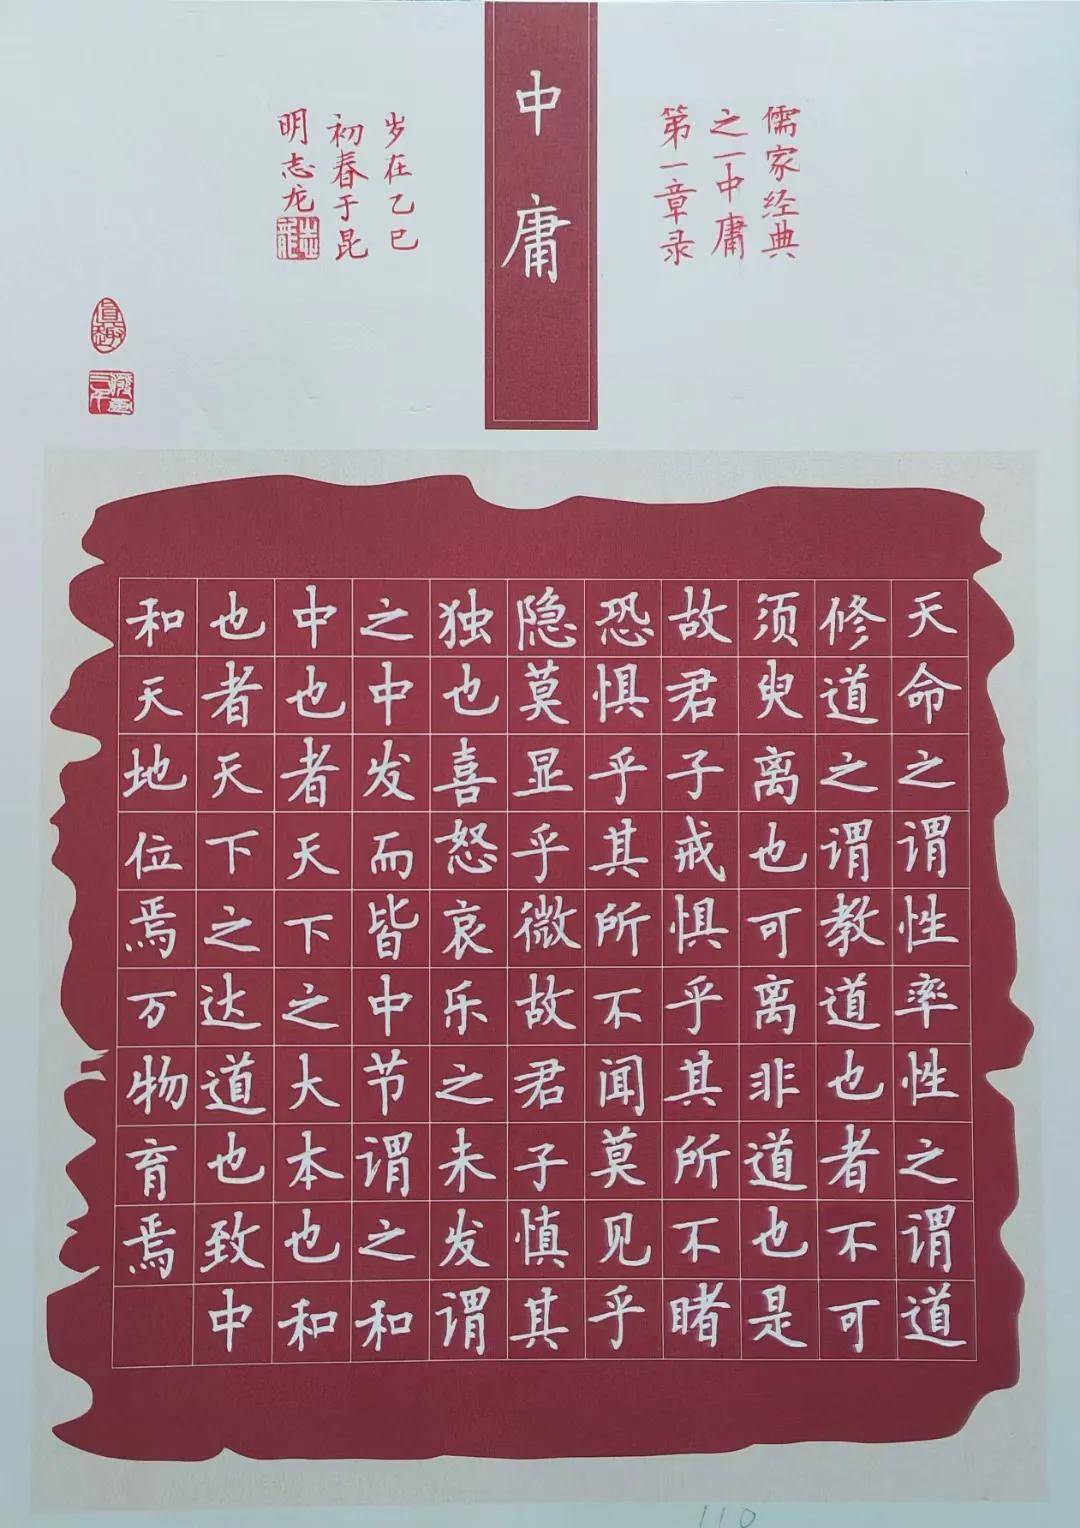 儒家经典
之一中庸
第一章录
中庸
岁在乙巳
初春于昆
明志龙
志龙
真趣
天命之谓性率性之谓道
修道之谓教道也者不可
须臾离也可离非道也是
故君子戒惧乎其所不睹
恐惧乎其所不闻莫见乎
隐莫显乎微故君子慎其
独也喜怒哀乐之未发谓
之中发而皆中节谓之和
中也者天下之大本也和
也者天下之达道也致中
和天地位焉万物育焉
110